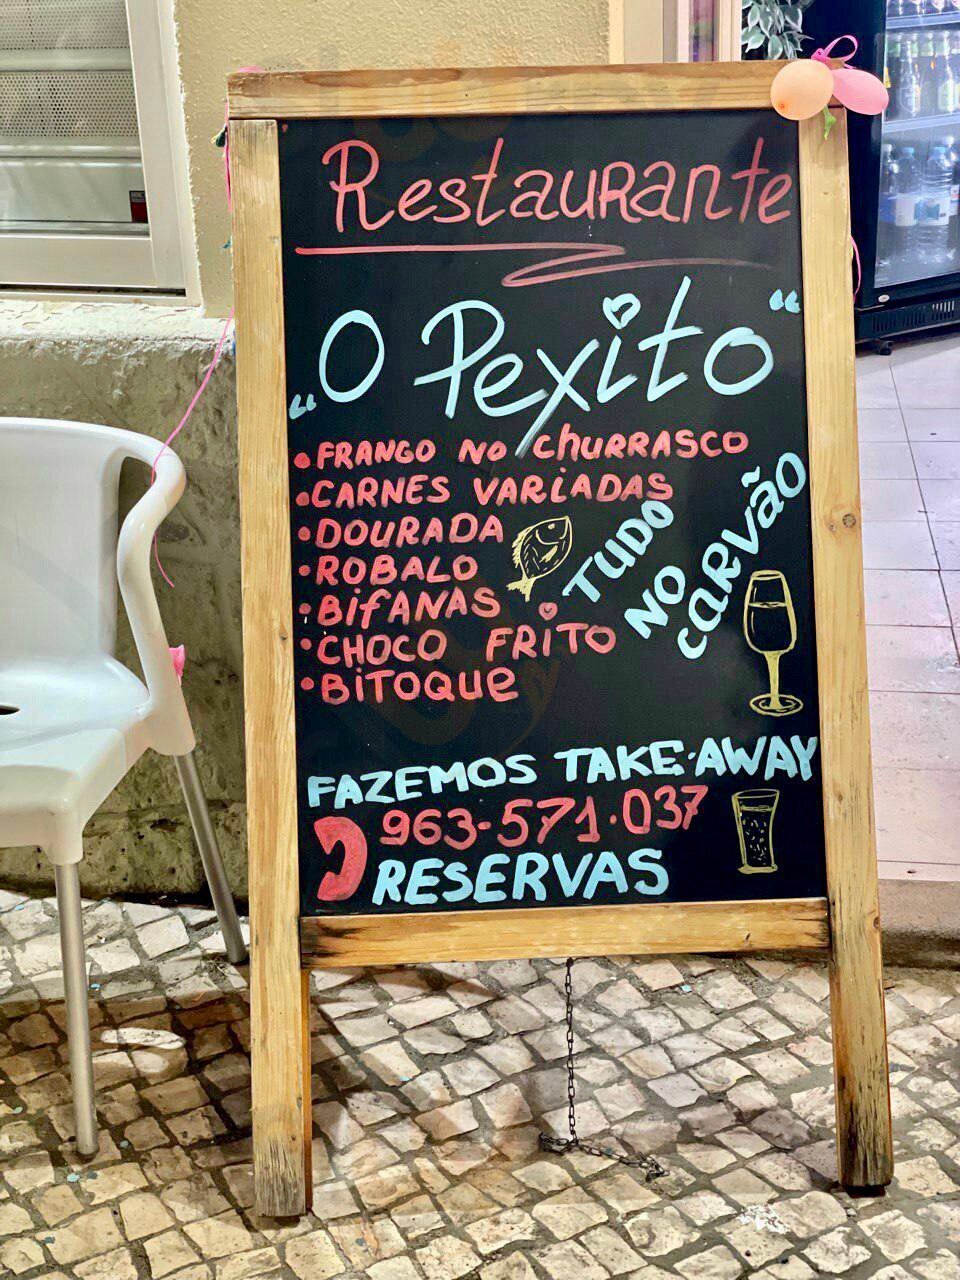 Restaurante
„O Pexito“
•FRANGO NO ChURRASCO
•CARNES VARiADAS
•DOURADA
•ROBALO
•BifANAS
•CHOCO FRiTO
•BiTOQUe
TUDO
NO
CARVÃO
FAZEMOS TAKE-AWAY
963-571-037
RESERVAS